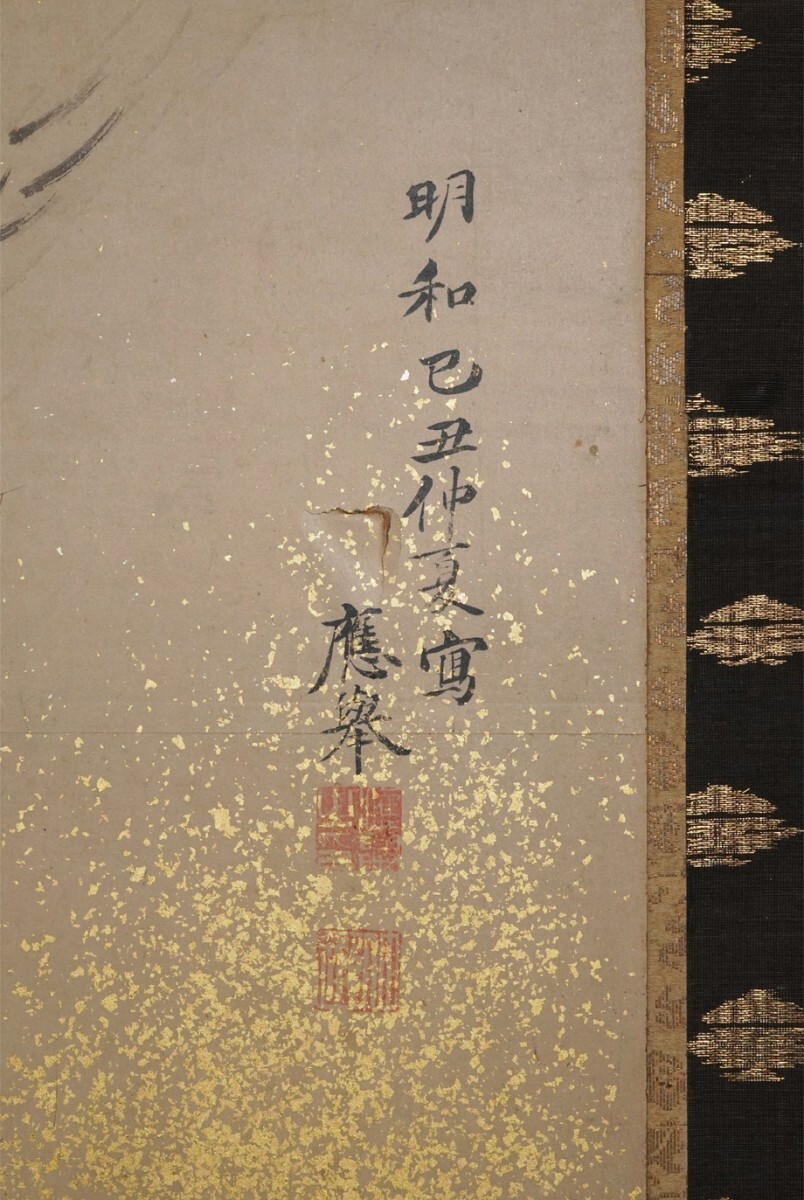 明和己丑仲夏寫
應舉